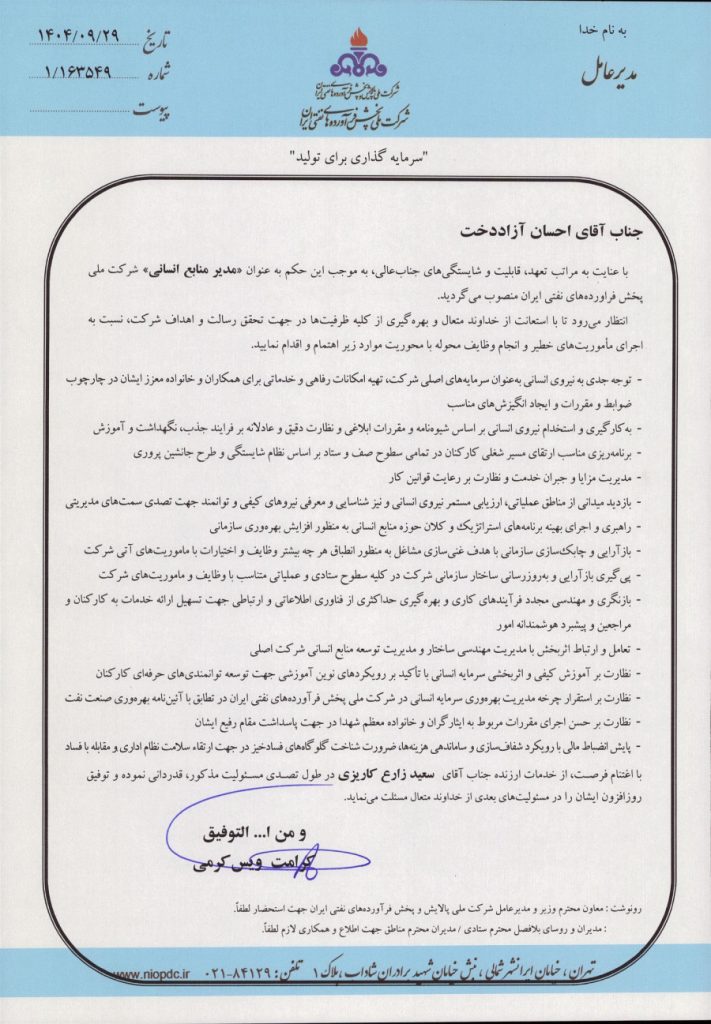 به نام خدا
مدیرعامل
شرکت ملی پالایش و پخش فرآورده‌های نفتی ایران
شرکت ملی پخش فرآورده‌های نفتی ایران
تاریخ ۱۴۰۴/۰۹/۲۹
شماره ۱/۱۶۳۵۴۹
پیوست
"سرمایه گذاری برای تولید"
جناب آقای احسان آزاددخت
با عنایت به مراتب تعهد، قابلیت و شایستگی‌های جناب‌عالی، به موجب این حکم به عنوان «مدیر منابع انسانی» شرکت ملی
پخش فراورده‌های نفتی ایران منصوب می‌گردید.
انتظار می‌رود تا با استعانت از خداوند متعال و بهره‌گیری از کلیه ظرفیت‌ها در جهت تحقق رسالت و اهداف شرکت، نسبت به
اجرای مأموریت‌های خطیر و انجام وظایف محوله با محوریت موارد زیر اهتمام و اقدام نمایید.
- توجه جدی به نیروی انسانی به‌عنوان سرمایه‌های اصلی شرکت، تهیه امکانات رفاهی و خدماتی برای همکاران و خانواده معزز ایشان در چارچوب
ضوابط و مقررات و ایجاد انگیزش‌های مناسب
- به‌کارگیری و استخدام نیروی انسانی بر اساس شیوه‌نامه و مقررات ابلاغی و نظارت دقیق و عادلانه بر فرایند جذب، نگهداشت و آموزش
- برنامه‌ریزی مناسب ارتقای مسیر شغلی کارکنان در تمامی سطوح صف و ستاد بر اساس نظام شایستگی و طرح جانشین پروری
- مدیریت مزایا و جبران خدمت و نظارت بر رعایت قوانین کار
- بازدید میدانی از مناطق عملیاتی، ارزیابی مستمر نیروی انسانی و نیز شناسایی و معرفی نیروهای کیفی و توانمند جهت تصدی سمت‌های مدیریتی
- راهبری و اجرای بهینه برنامه‌های استراتژیک و کلان حوزه منابع انسانی به منظور افزایش بهره‌وری سازمانی
- بازآرایی و چابک‌سازی سازمانی با هدف غنی‌سازی مشاغل به منظور انطباق هر چه بیشتر وظایف و اختیارات با ماموریت‌های آتی شرکت
- پی‌گیری بازآرایی و به‌روزرسانی ساختار سازمانی شرکت در کلیه سطوح ستادی و عملیاتی متناسب با وظایف و ماموریت‌های شرکت
- بازنگری و مهندسی مجدد فرآیندهای کاری و بهره‌گیری حداکثری از فناوری اطلاعاتی و ارتباطی جهت تسهیل ارائه خدمات به کارکنان و
مراجعین و پیشبرد هوشمندانه امور
- تعامل و ارتباط اثربخش با مدیریت مهندسی ساختار و مدیریت توسعه منابع انسانی شرکت اصلی
- نظارت بر آموزش کیفی و اثربخشی سرمایه انسانی با تأکید بر رویکردهای نوین آموزشی جهت توسعه توانمندی‌های حرفه‌ای کارکنان
- نظارت بر استقرار چرخه مدیریت بهره‌وری سرمایه انسانی در شرکت ملی پخش فرآورده‌های نفتی ایران در تطابق با آئین‌نامه بهره‌وری صنعت نفت
- نظارت بر حسن اجرای مقررات مربوط به ایثارگران و خانواده معظم شهدا در جهت پاسداشت مقام رفیع ایشان
- پایش انضباط مالی با رویکرد شفاف‌سازی و ساماندهی هزینه‌ها، ضرورت شناخت گلوگاه‌های فسادخیز در جهت ارتقاء سلامت نظام اداری و مقابله با فساد
با اغتنام فرصت، از خدمات ارزنده جناب آقای سعید زارع کاریزی در طول تصدی مسئولیت مذکور، قدردانی نموده و توفیق
روزافزون ایشان را در مسئولیت‌های بعدی از خداوند متعال مسئلت می‌نماید.
و من ا... التوفیق
کرامت ویس‌کرمی
رونوشت : معاون محترم وزیر و مدیرعامل شرکت ملی پالایش و پخش فرآورده‌های نفتی ایران جهت استحضار لطفاً.
: مدیران و روسای بلافصل محترم ستادی / مدیران محترم مناطق جهت اطلاع و همکاری لازم لطفاً.
تهران ، خیابان ایرانشهر شمالی ، نبش خیابان شهید برادران شاداب ، پلاک ۱ تلفن : ۸۴۱۲۹-۰۲۱ www.niopdc.ir